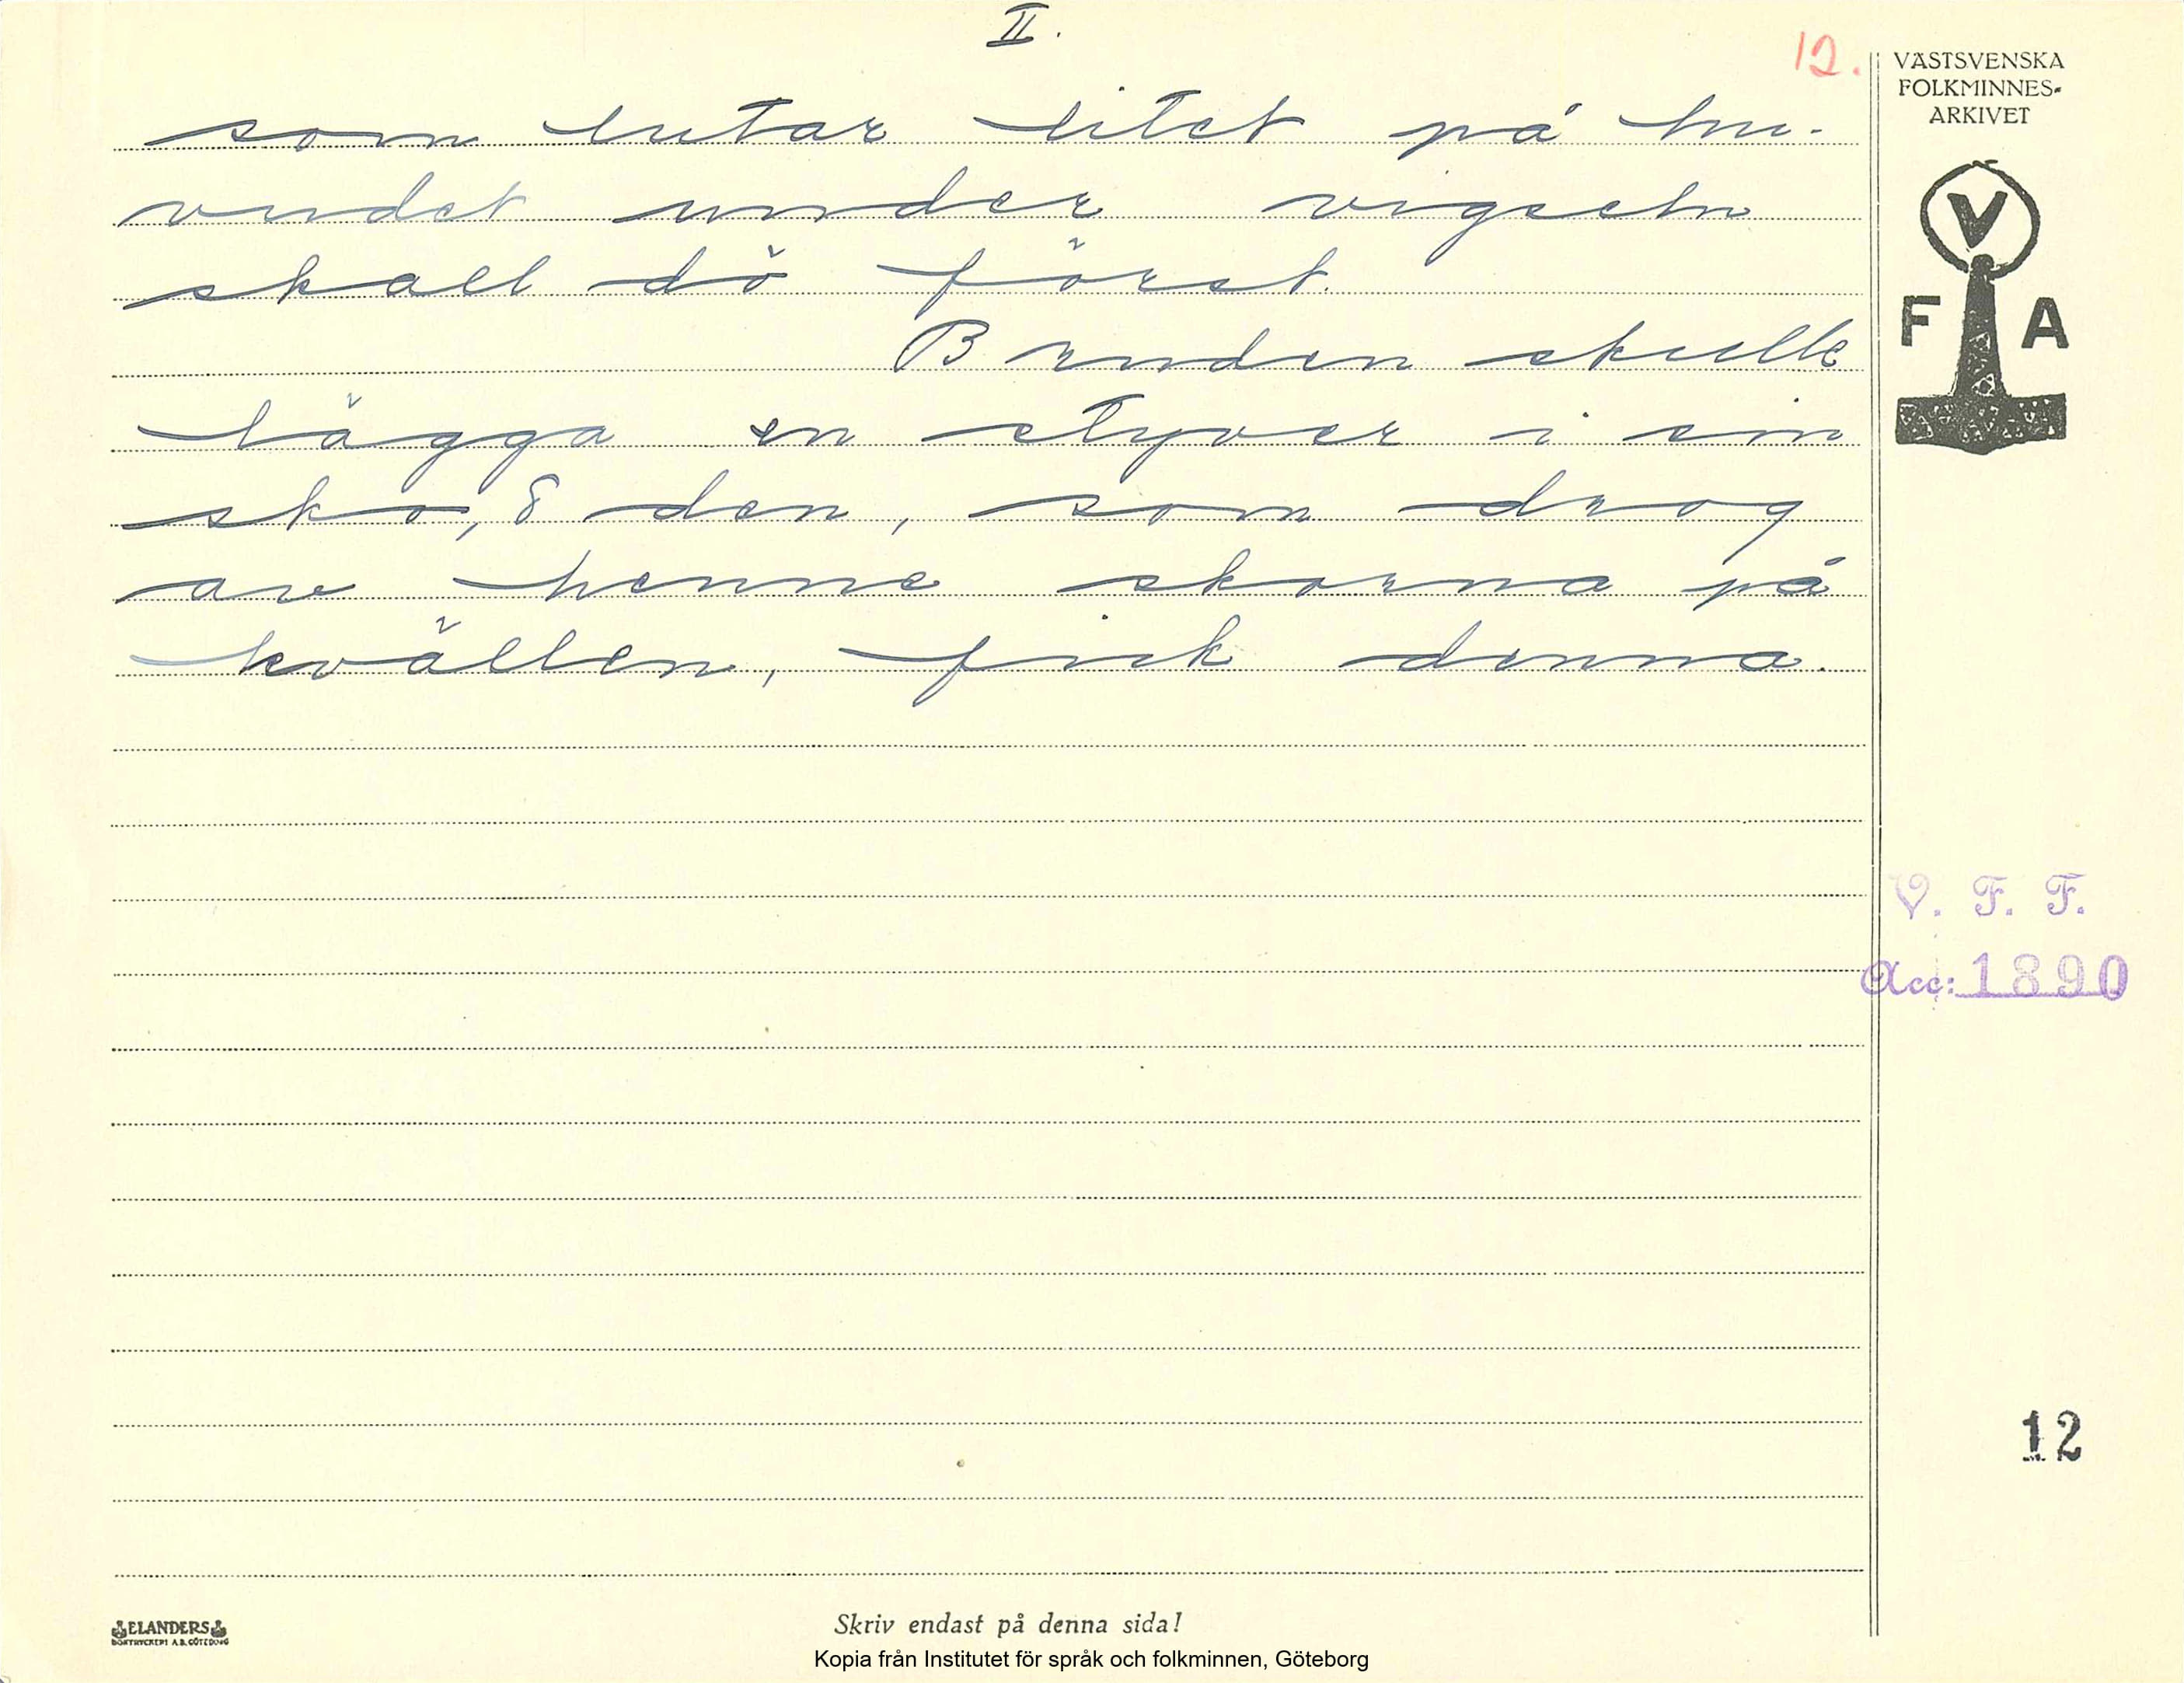 II.
12.
VÄSTSVENSKA
FOLKMINNES-
ARKIVET
V
F A
som lutar litet på hu-
vudet under vigseln
skall dö först.
Bruden skulle
lägga en styver i sin
sko, & den, som drog
av henne skorna på
kvällen, fick denna.
V. F. F.
Acc: 1890
12
ELANDERS
BOKTRYCKERI A.B. GÖTEBORG
Skriv endast på denna sida!
Kopia från Institutet för språk och folkminnen, Göteborg